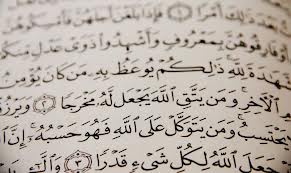 بَعْدَ ذَٰلِكَ أَمْرًا ١ فَإِذَا بَلَغْنَ أَجَلَهُنَّ فَأَمْسِكُوهُنَّ
أَوْ فَارِقُوهُنَّ بِمَعْرُوفٍ وَأَشْهِدُوا ذَوَىْ عَدْلٍ مِّنكُمْ
ٱلشَّهَٰدَةَ لِلَّهِ ذَٰلِكُمْ يُوعَظُ بِهِۦ مَن كَانَ يُؤْمِنُ
ٱلْـَٔاخِرِ وَمَن يَتَّقِ ٱللَّهَ يَجْعَل لَّهُۥ مَخْرَجًا ٢ وَيَرْزُقْهُ
يَحْتَسِبُ وَمَن يَتَوَكَّلْ عَلَى ٱللَّهِ فَهُوَ حَسْبُهُۥٓ إِنَّ ٱللَّهَ
جَعَلَ ٱللَّهُ لِكُلِّ شَىْءٍ قَدْرًا ٣ وَٱلَّٰٓـِٔى